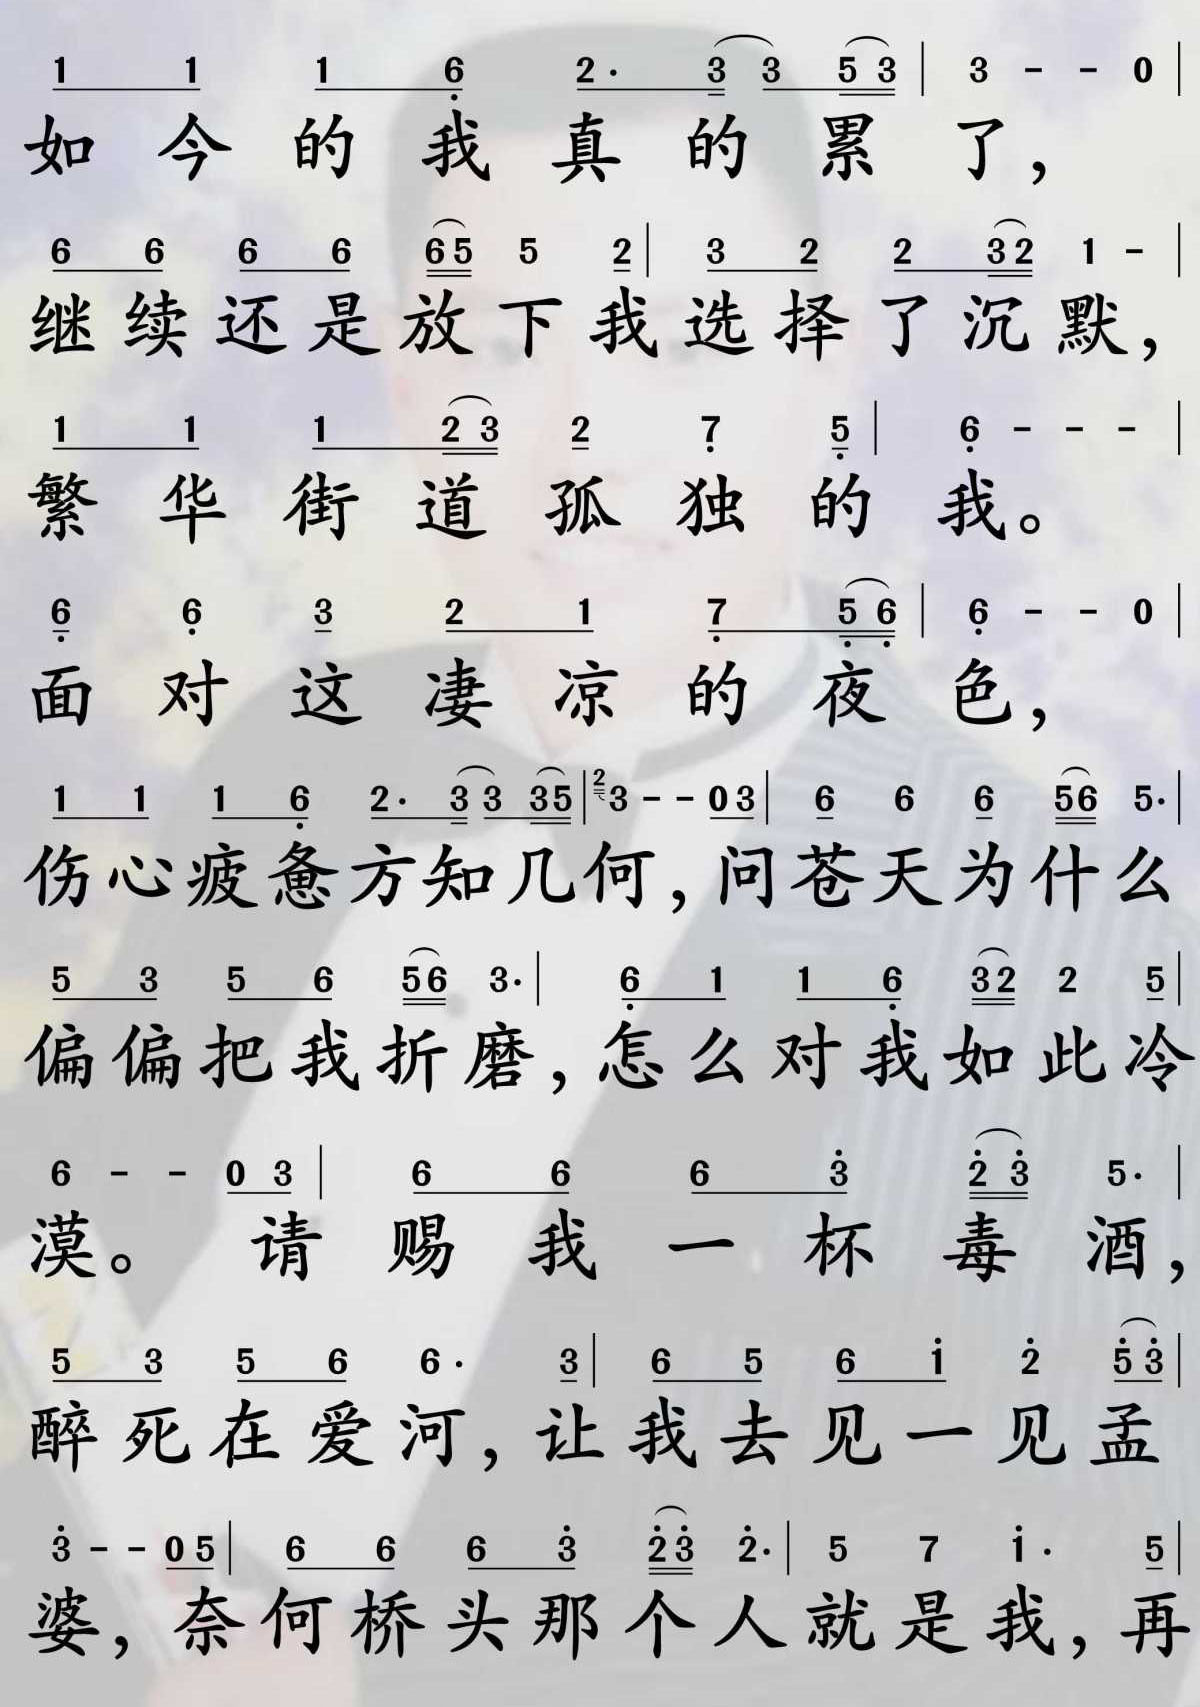 1 1 1 6 2· 3 3 5 3 | 3 - - 0 |
如今的我真的累了，
6 6 6 6 6 5 5 2 | 3 2 2 3 2 1 - |
继续还是放下我选择了沉默，
1 1 1 2 3 2 7 5 | 6 - - - |
繁华街道孤独的我。
6 6 3 2 1 7 5 6 | 6 - - 0 |
面对这凄凉的夜色，
1 1 1 6 2· 3 3 3 5 | 2 3 - - 0 3 | 6 6 6 5 6 5· |
伤心疲惫方知几何，问苍天为什么
5 3 5 6 5 6 3· | 6 1 1 6 3 2 2 5 |
偏偏把我折磨，怎么对我如此冷
6 - - 0 3 | 6 6 6 3 2 3 5· |
漠。请赐我一杯毒酒，
5 3 5 6 6· 3 | 6 5 6 1 2 5 3 |
醉死在爱河，让我去见一见孟
3 - - 0 5 | 6 6 6 3 2 3 2· | 5 7 1· 5 |
婆，奈何桥头那个人就是我，再